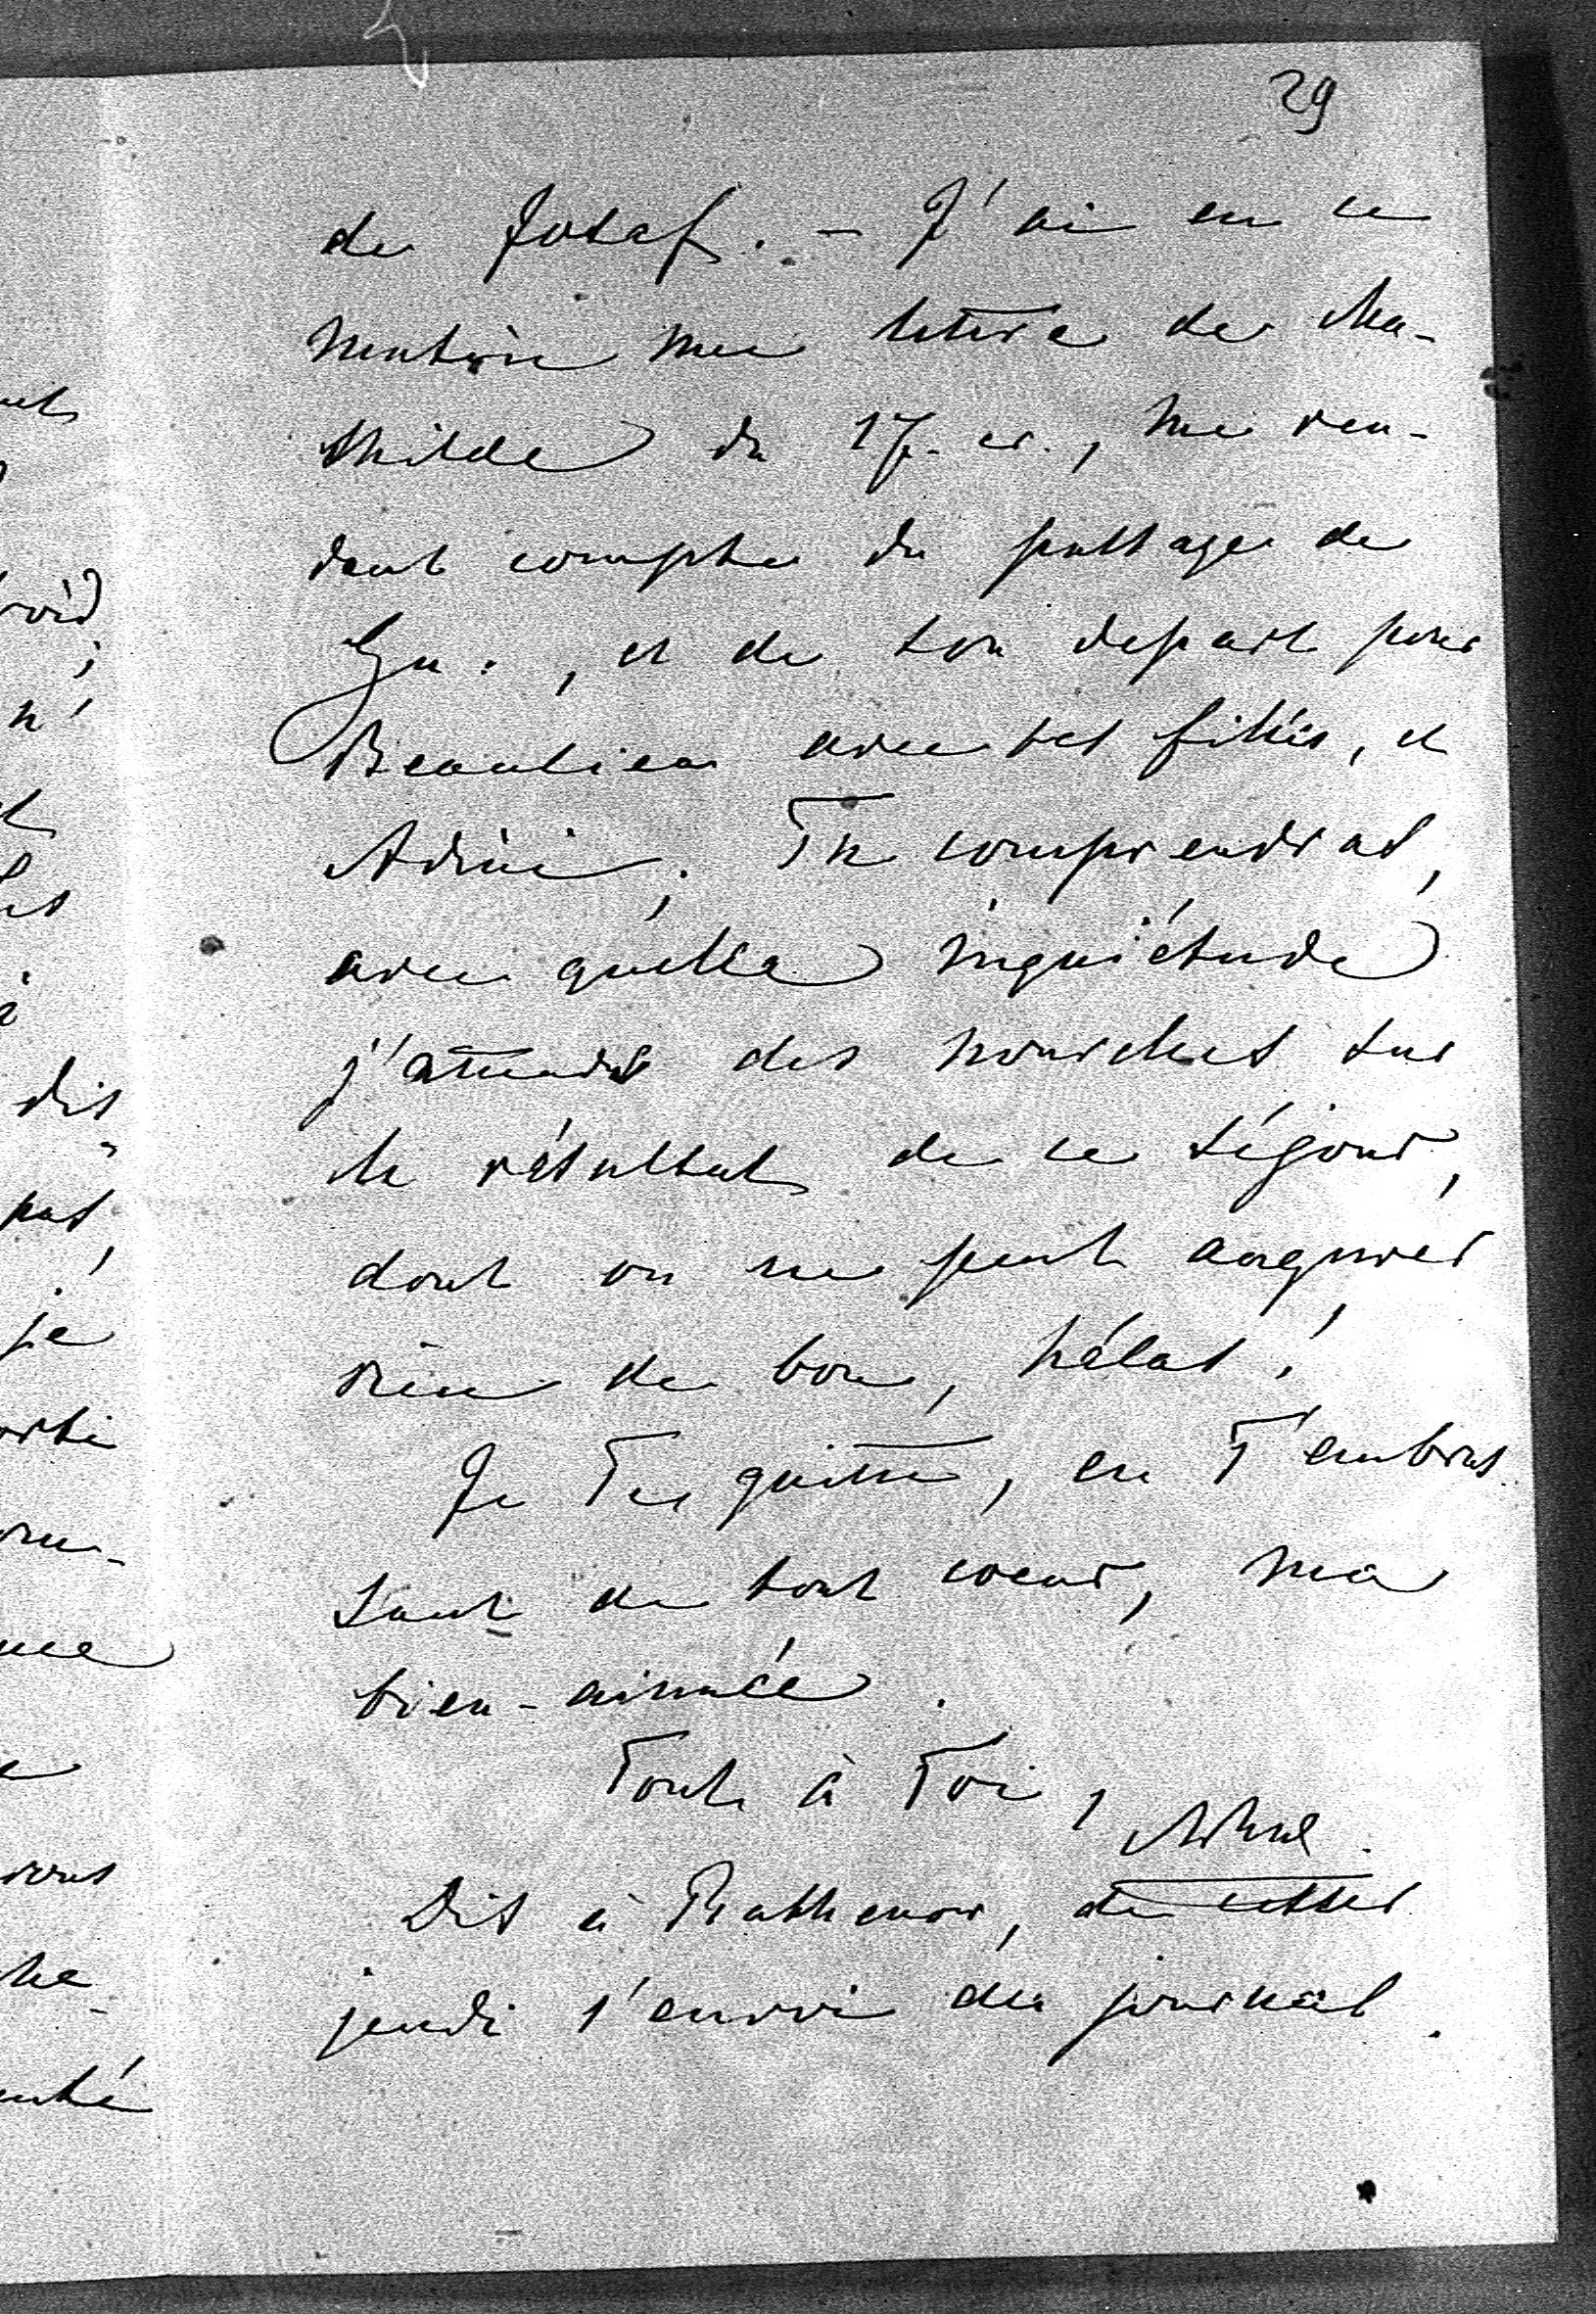 29
de Josaf. – J'ai eu ce
matin une lettre de Ma-
thilde du 17. cr., me ren-
dant compte du passage de
Gu., et de son depart pour
Beaulieu avec ses filles, et
Adini. Tu comprendras,
avec quelle inquiétude
j'attends des nouvelles sur
le résultat de ce séjour,
dont on ne peut augurer
rien de bon, hélas!
Je Te quitte, en T'embras
sant de tout coeur, ma
bien-aimée.
Tout à Toi,
Dis à Rathenow, de cesser
jeudi l'envoi du journal.